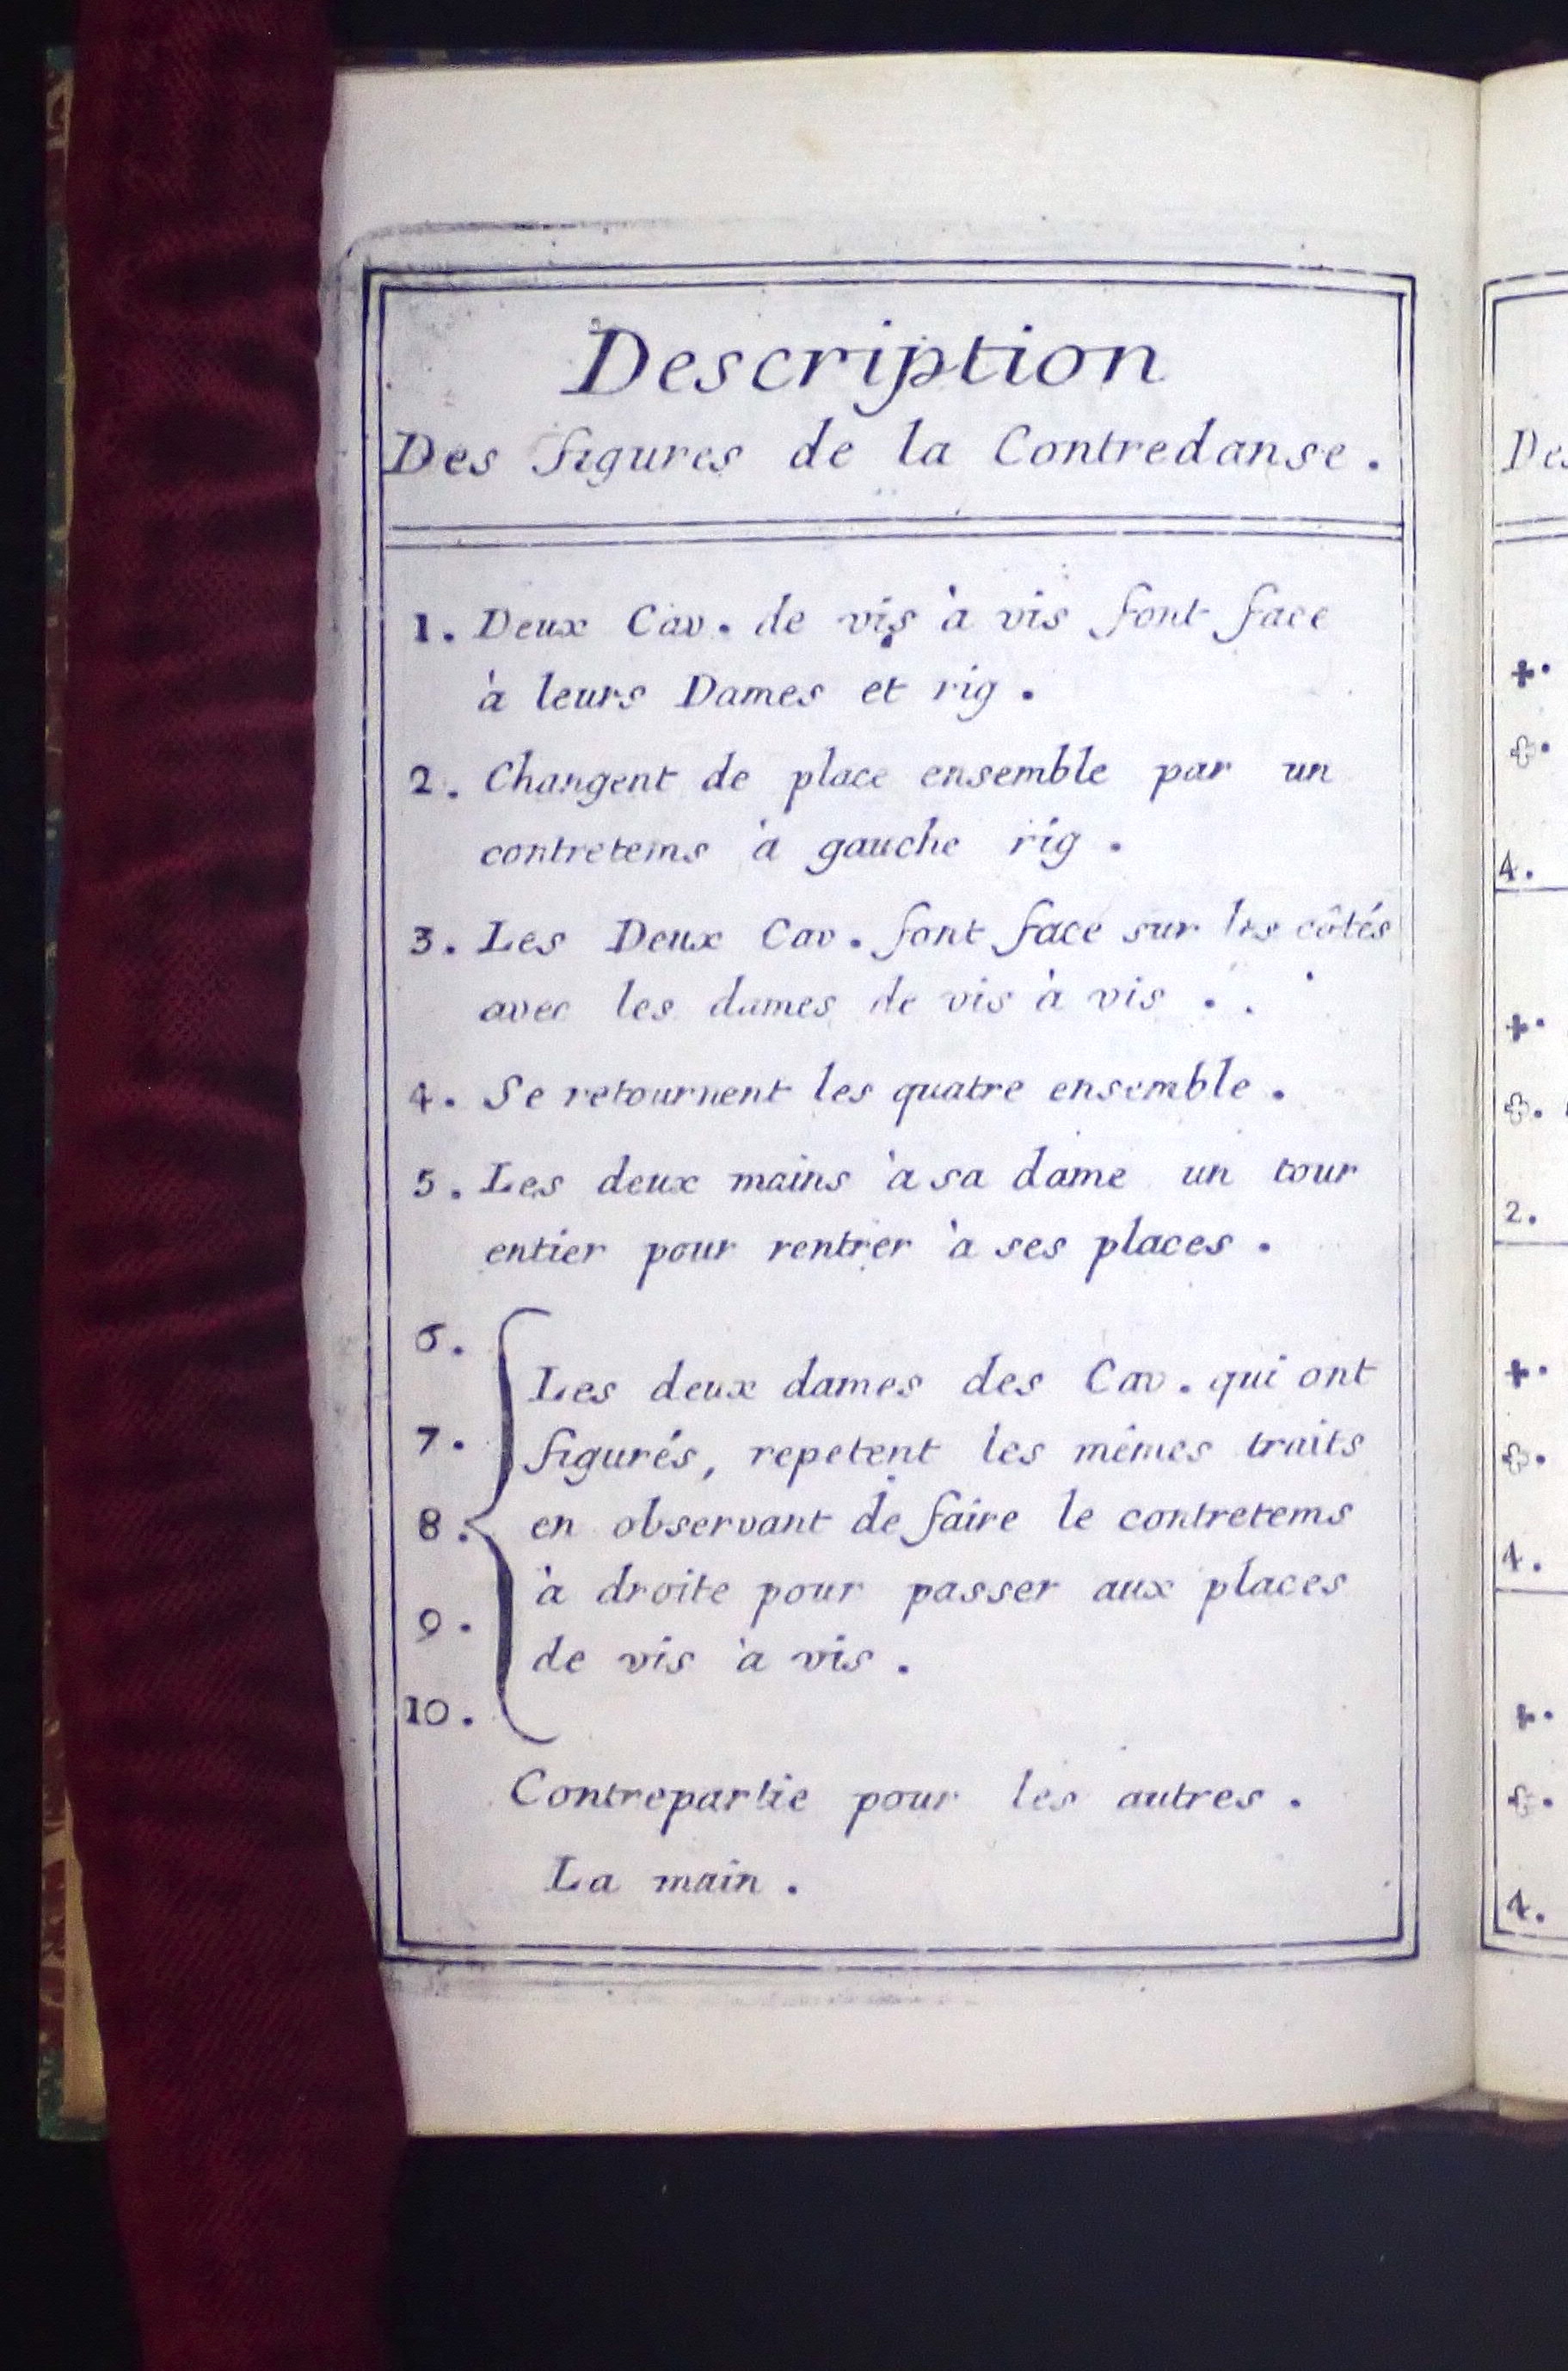 Description
Des figures de la Contredanse.
1. Deux Cav. de vis à vis font face
à leurs Dames et rig.
2. Changent de place ensemble par un
contretems à gauche rig.
3. Les Deux Cav. font face sur les côtés
avec les dames de vis à vis.
4. Se retournent les quatre ensemble.
5. Les deux mains à sa dame un tour
entier pour rentrer à ses places.
6.
Les deux dames des Cav. qui ont
7. figurés, repetent les mêmes traits
8. en observant de faire le contretems
à droite pour passer aux places
9. de vis à vis.
10.
Contrepartie pour les autres.
La main.
4.
2.
4.
4.